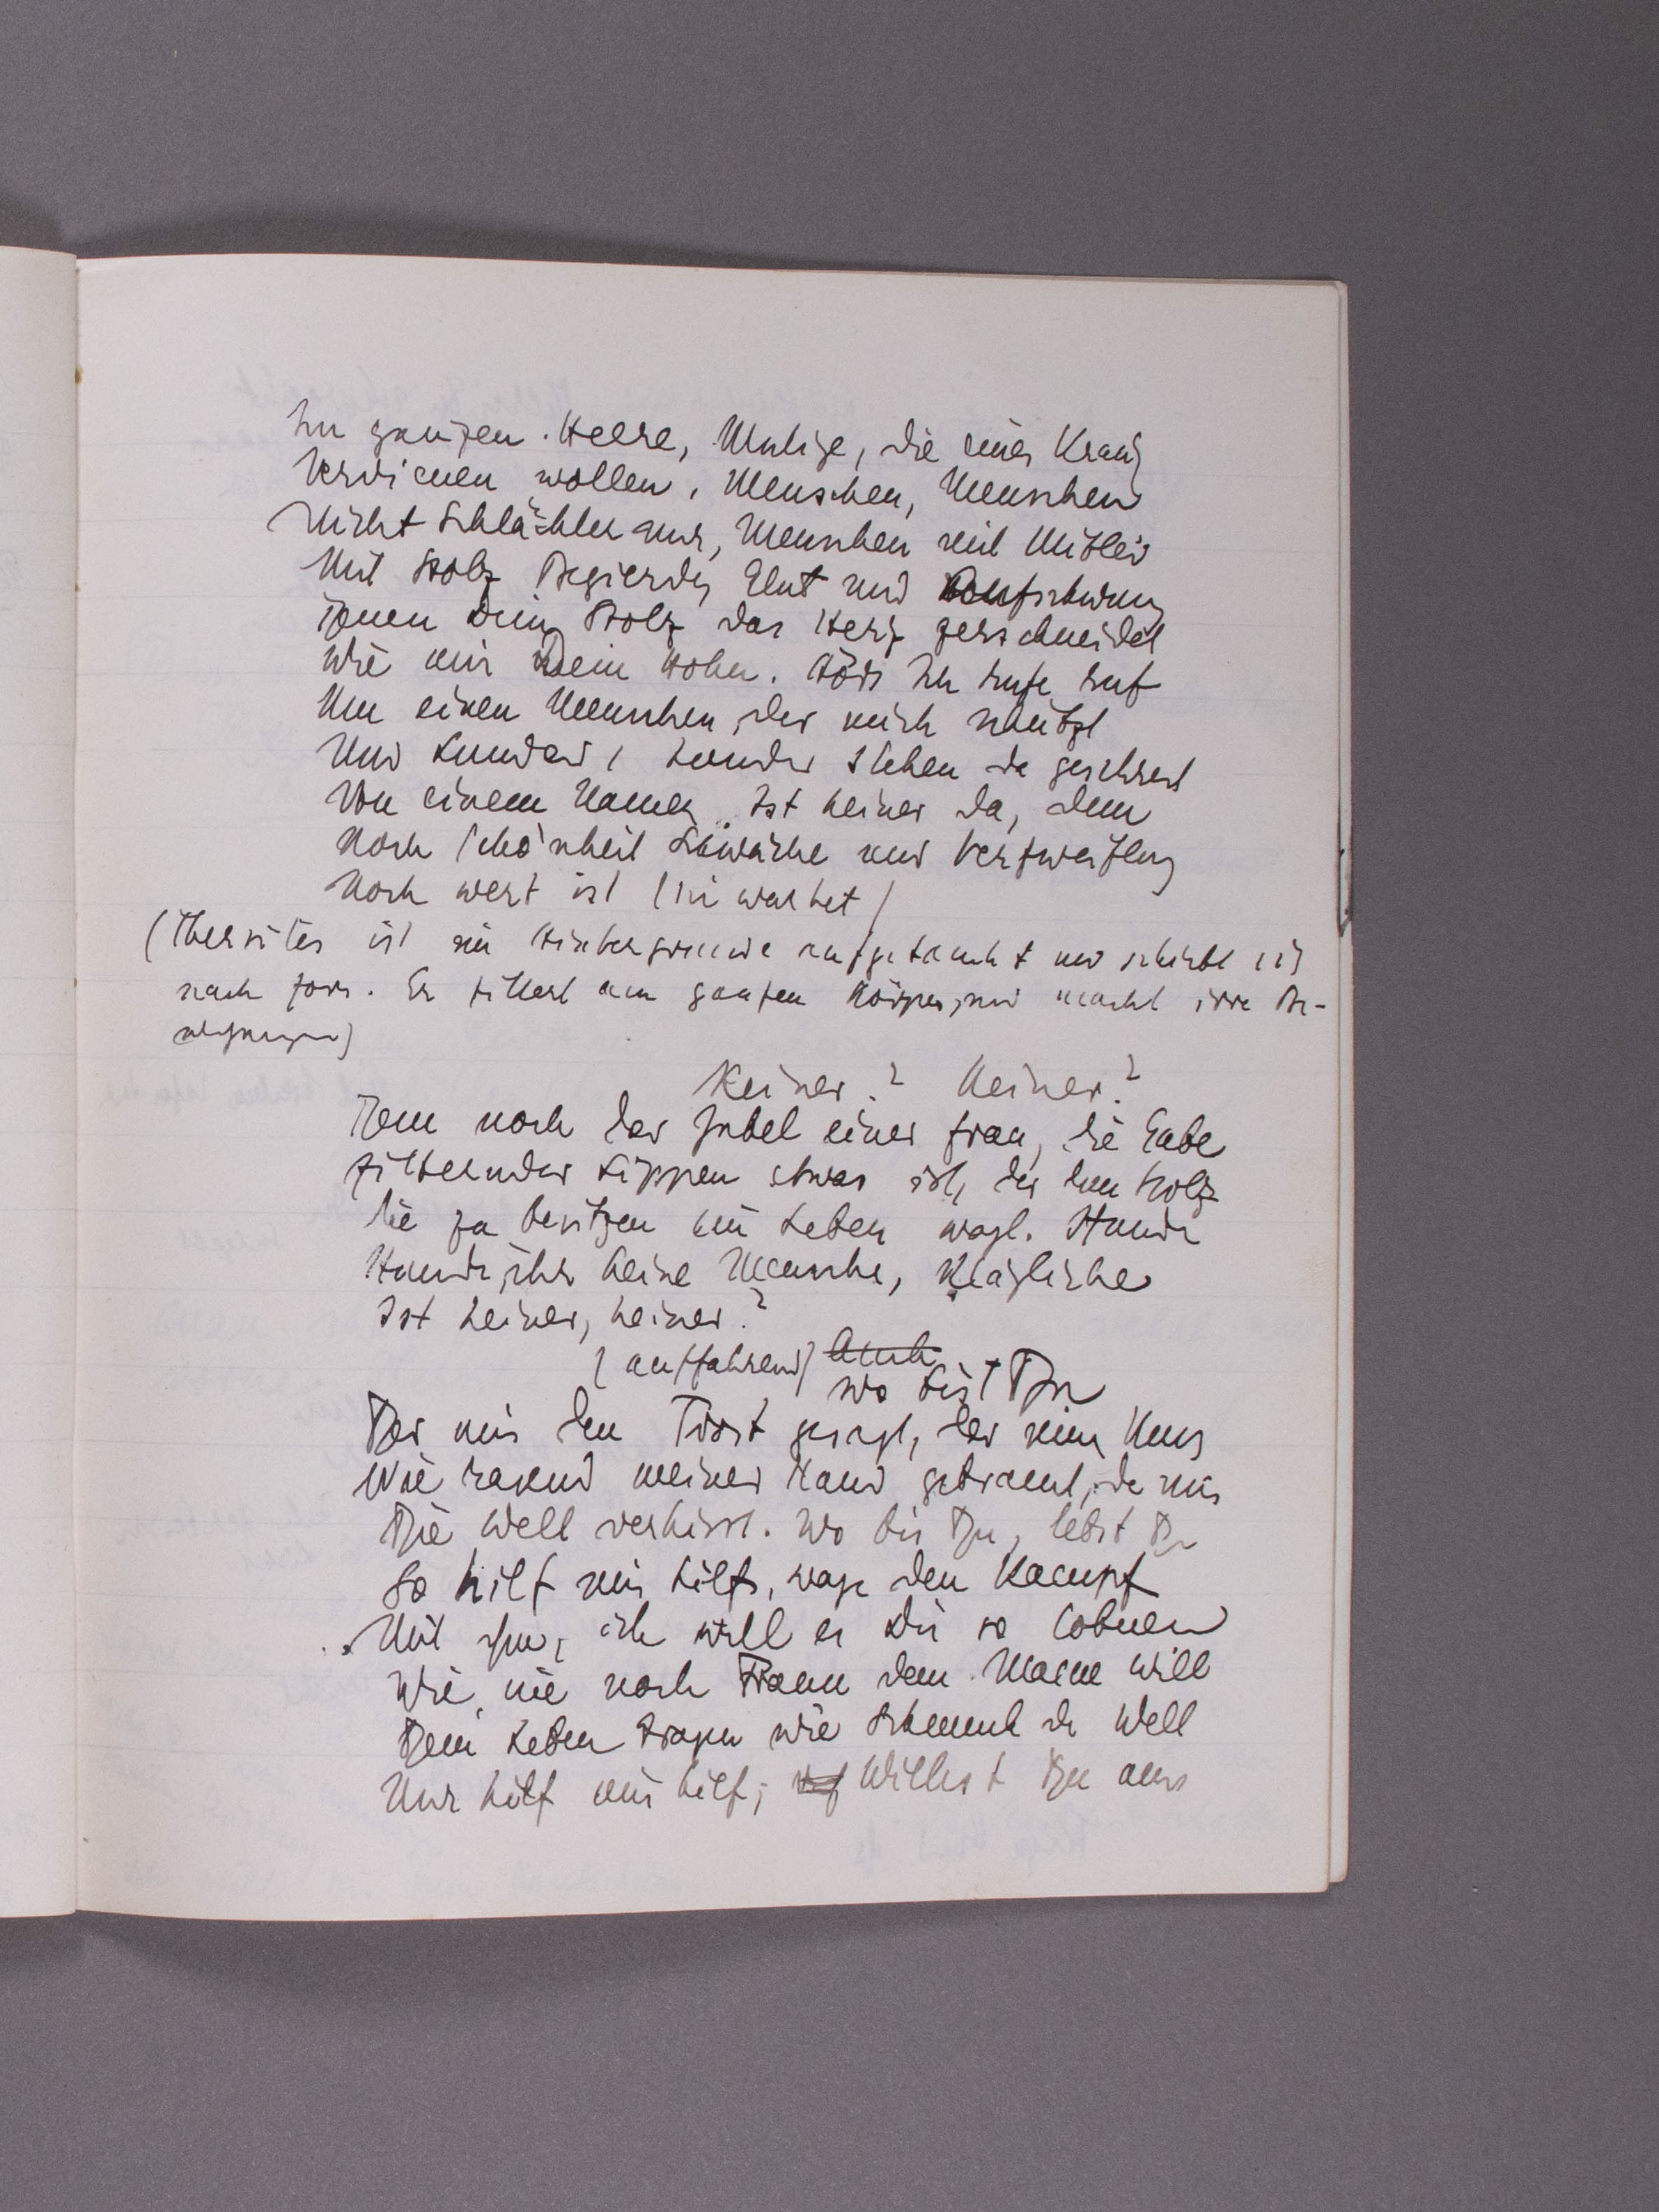 Im ganzen Heere, Mutige, die einen Kranz
Verdienen wollen, Menschen, Menschen
Nicht Schlächter nur, Menschen mit Mitleid
Mit Stolz Begierde, Glut und Aufschwung
Denen Dein Stolz das Herz zerschneidet
Wie mir Dein Hohn. Hört Ich rufe ruf
Um einen Menschen, der mich schützt
Und hundert, hunder stehen da geschreckt
Von einem Namen. Ist keiner da, dem
Noch Schönheit Schwäche und Verzweiflung
Noch wert ist (sie wartet)
(Thersites ist im Hintergrunde aufgetaucht und schiebt sich
nach vorn. Er zittert am ganzen Körper, und macht irre Be-
wegungen)
Keiner? Keiner?
Dem noch der Jubel einer Frau, die Gabe
zitternder Lippen etwas ist, der den Stolz
Sie zu besitzen ein Leben wagt. Hunde
Hunde, ihr keine Mensche, Klägliche
Ist keiner, keiner?
(auffahrend) Auch
wo bist Du
Der mir den Trost gesagt, der mein Kuss
Wie rasend meiner Hand gebrannt, da mir
Die Welt verhisst. Wo bis Du, lebst Du
So hilf mir hilf, wage den Kampf
Mit ihm, ich will es Dir so lohnen
Wie nie noch Frauen dem Manne will
Dein Leben tragen wie Schmuck der Welt
Nur hilf mir hilf; Willst Du aus